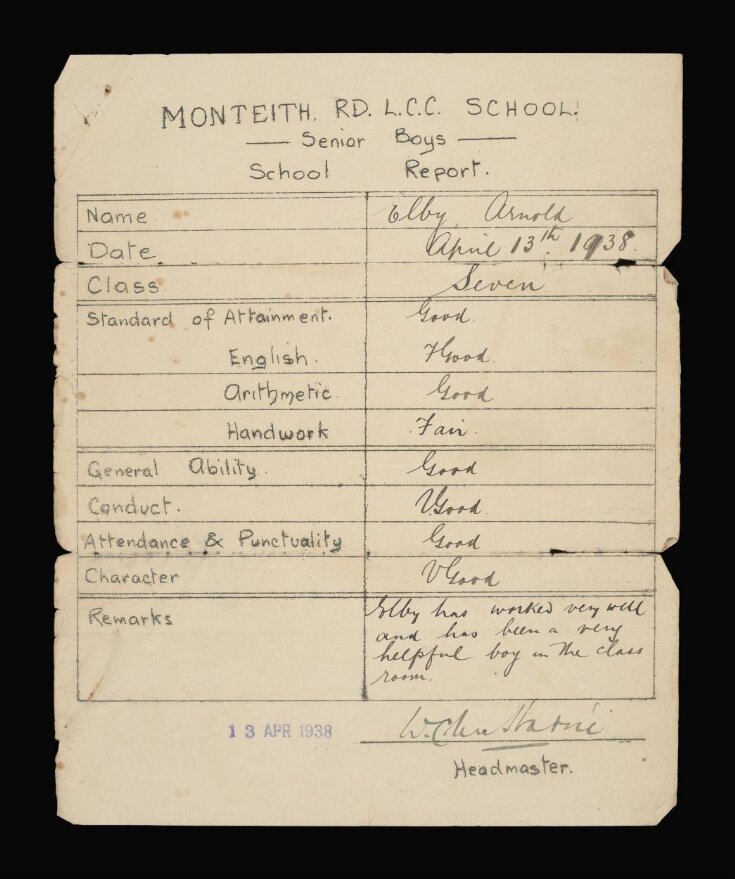 MONTEITH. RD. L.C.C. SCHOOL.
— Senior Boys —
School Report.
Name. Elby Arnold
Date. April 13th. 1938.
Class Seven
Standard of Attainment. Good.
English. Good.
Arithmetic. Good
Handwork Fair.
General Ability. Good
Conduct. VGood.
Attendance & Punctuality Good
Character VGood
Remarks Elby has worked very well
and has been a very
helpful boy in the class
room.
13 APR 1938
Headmaster.